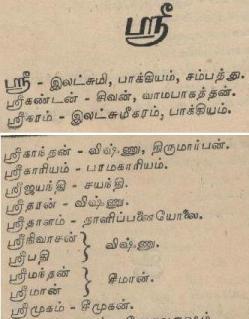 ஸ்ரீ
ஸ்ரீ - இலட்சுமி, பாக்கியம், சம்பத்து.
ஸ்ரீகண்டன் - சிவன், வாமபாகத்தன்.
ஸ்ரீகரம் - இலட்சுமீகரம், பாக்கியம்.
ஸ்ரீகாந்தன் - விஷ்ணு, திருமார்பன்.
ஸ்ரீகாரியம் - பரமகாரியம்.
ஸ்ரீஜயந்தி - சயந்தி.
ஸ்ரீதரன் - விஷ்ணு.
ஸ்ரீதாளம் - நாளிப்பணையோலை.
ஸ்ரீநிவாசன் } விஷ்ணு.
ஸ்ரீபதி
ஸ்ரீமந்தன் } சீமான்.
ஸ்ரீமான்
ஸ்ரீமுகம் - சீமுகன்.